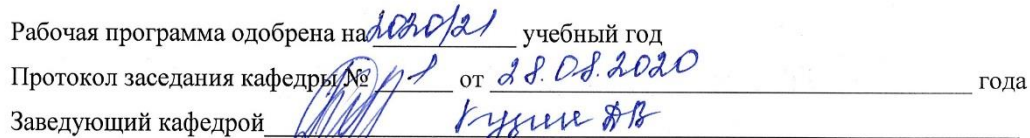 Рабочая программа одобрена на 2020/21 учебный год
Протокол заседания кафедры № 1 от 28.08.2020 года
Заведующий кафедрой АВ